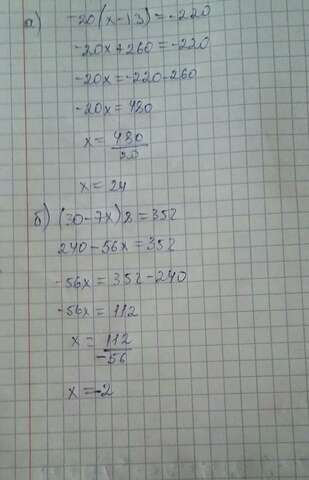 а) -20(x-13)=-220
-20x+260=-220
-20x=-220-260
-20x=480
x=480/20
x=24
б) (30-7x)8=352
240-56x=352
-56x=352-240
-56x=112
x=112/-56
x=-2